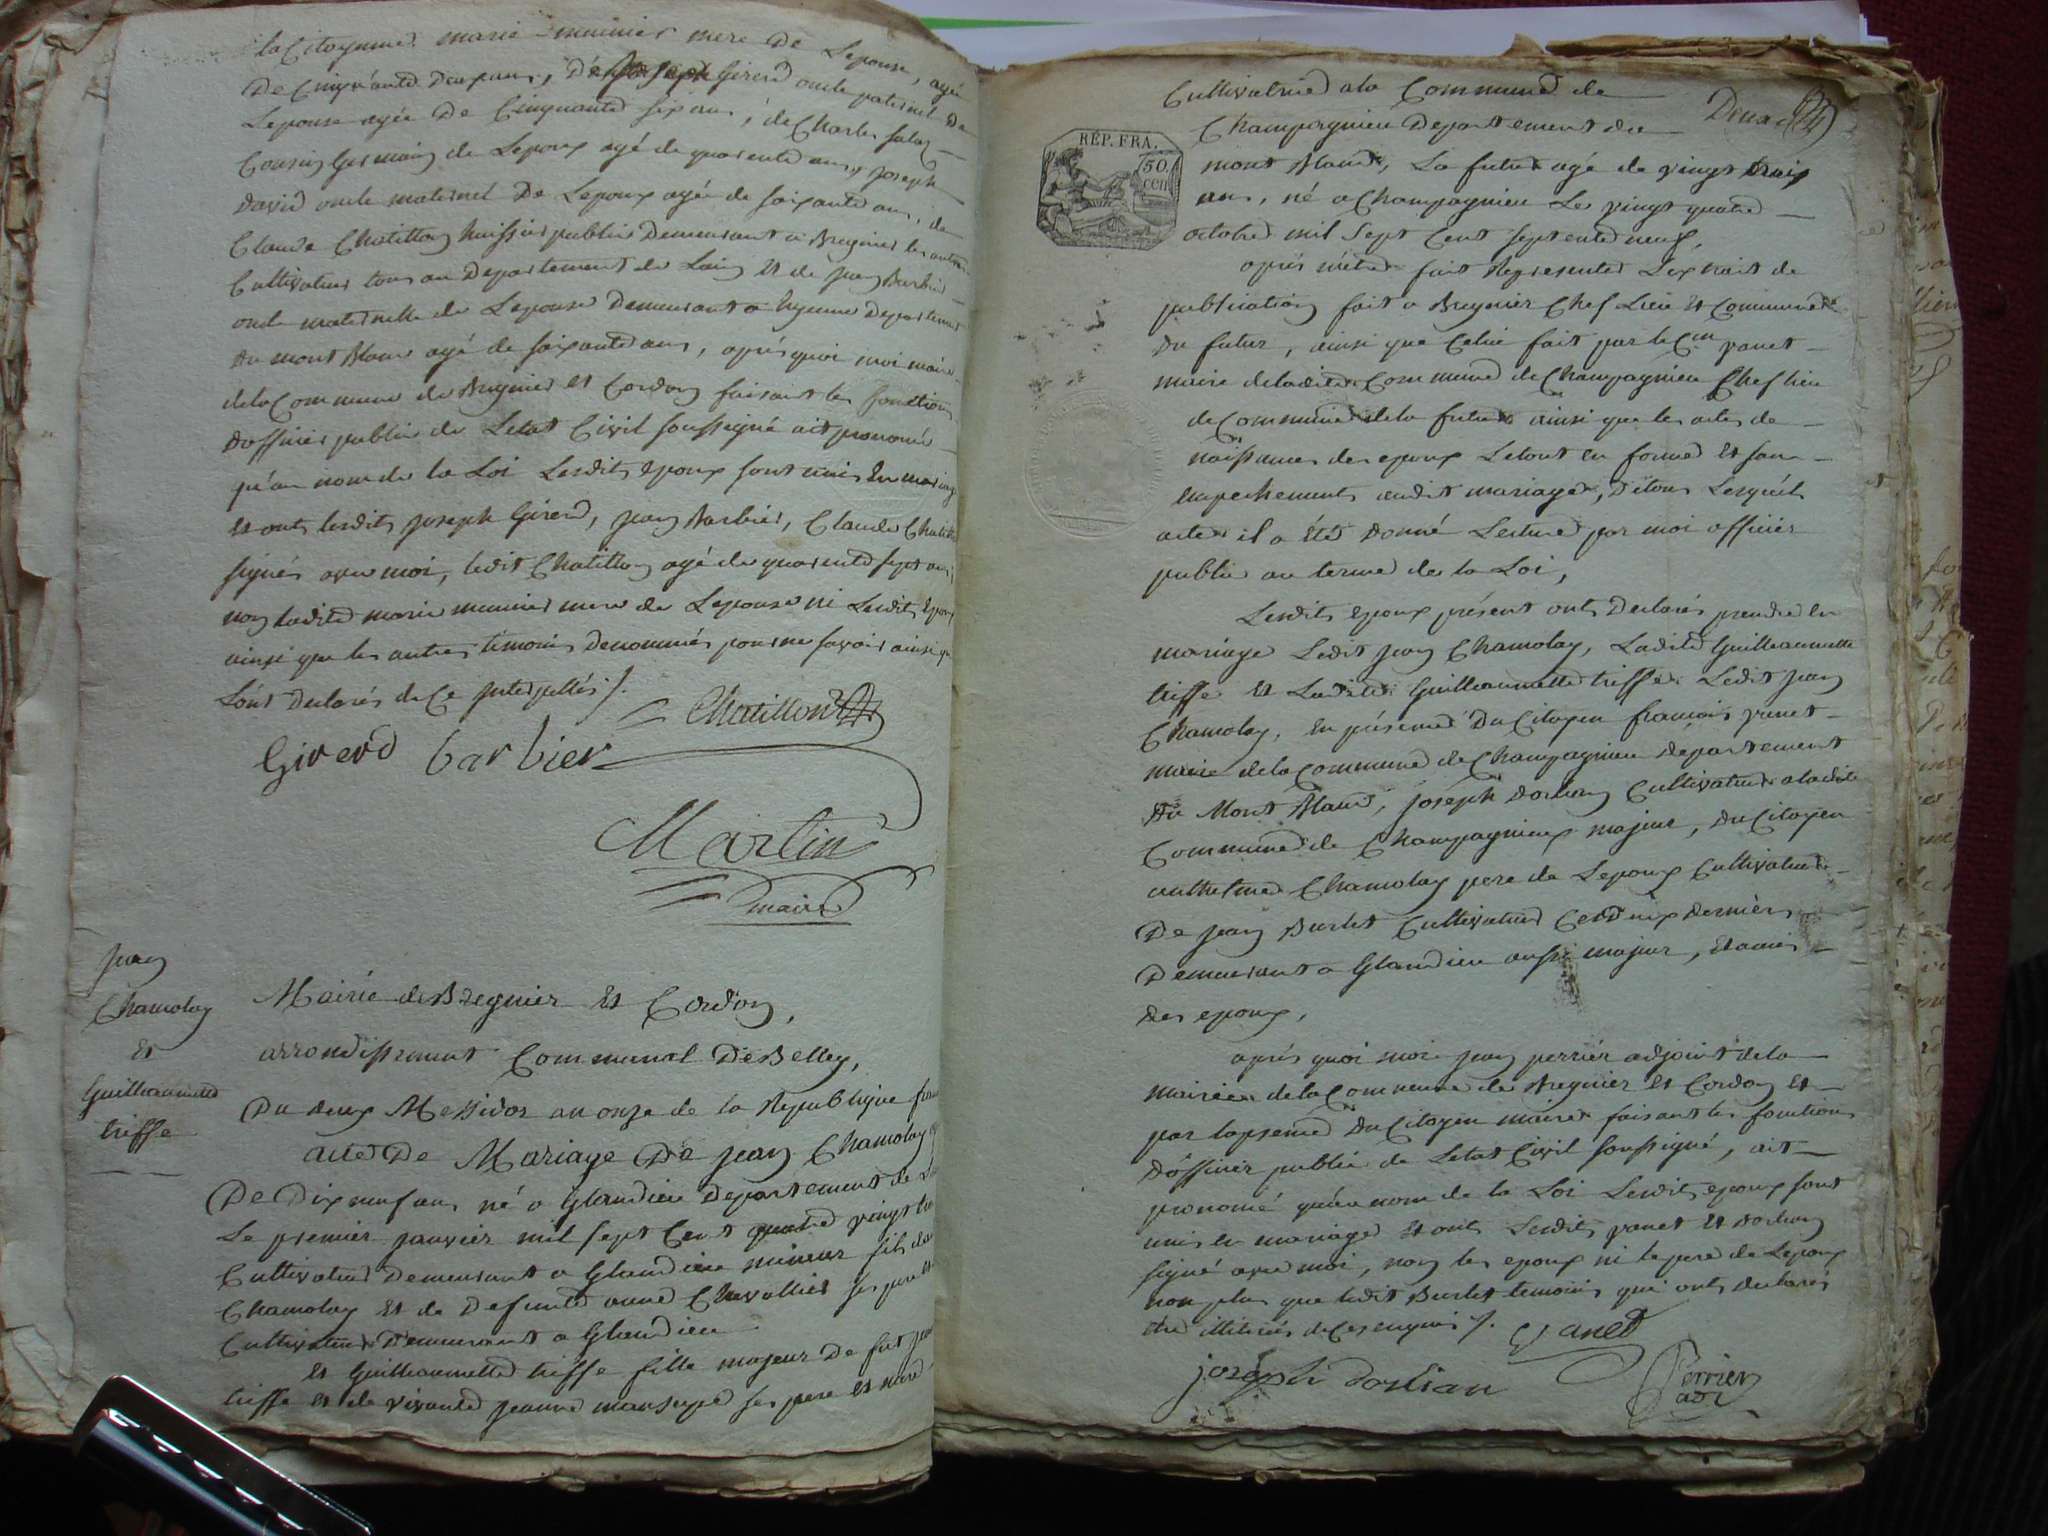 la Citoyenne marie munier mere De Lepouse, agé
De Cinquante Deux ans, De joseph Girerd oncle paternel De
Lepouse agée De Cinquante six ans, de Charles
Cousin Germain de Lepoux agé de quarente ans, joseph
David oncle maternel De Lepoux agée de soixante ans, de
Claude Chatillon huissier public Demeurant a Bregnier les autres
Cultivateurs tous au Departement de Lain Et de jean Barbier
oncle maternelle de Lepouse Demeurant a Departement
du mont Blanc agé de soixante ans, aprés quoi moi maire
de la Commune de Bregnier Et Cordon faisant les fonctions
Dofficier public de Letat Civil soussigné ait prononcé
qu'au nom de la Loi Lesdits epoux sont unis En mariage
Et onts lesdits joseph Girerd, jean Barbier, Claude Chatillon
signés avec moi, ledit Chatillon agé de quarente sept ans,
non ladite marie munier mere de Lepouse ni Lesdits Epoux
ainsi que les autres témoins Denommés pour ne savoir ainsi que
Lont Declarés de Ce jnterpellés /.
Chatillon
Girerd barbier
Martin
maire
jean
Chamolay
Et
Guilleaumette
triffe
Mairie de Bregnier Et Cordon,
arrondissement Communal De Belley,
Du deux Messidor an onze de la Republique fran
acte De Mariage De jean Chamolay
De Dix neuf ans né a Glandieu Departement de Lain
Le premier janvier mil sept Cent quatre vingt
Cultivateur Demeurant a Glandieu mineur fils de
Chamolay Et de Defunte anne Chevallier ses pere Et
Cultivateur Demeurant a Glandieu
Et Guilleaumette triffe fille majeur De fut jean
triffe Et de vivante jeanne ses pere Et mere
Cultivatrice a la Commune de
Champagnieu Departement du
mont Blanc, La future agé de vingt trois
ans, né a Champagnieu Les vingt quatre
octobre mil sept Cent septente neuf,
aprés m'être fait Representer Lextrait de
publication fait a Bregnier Chef Lieu Et Commune
du futur, ainsi que Celui fait par le Cen vanet
maire de ladite Commune de Champagnieu Chef lieu
de Commune de la future ainsi que les actes de
naissances des epoux Letout en forme Et sans
empechements audit mariage, De tous Lesquels
actes il a été donné Lecture par moi officier
public au terme de la Loi,
Lesdits epoux présent onts Declarés prendre En
mariage Ledit jean Chamolay, Ladite Guilleaumette
triffe Et Ladite Guilleaumette triffe Ledit jean
Chamolay, En présence Du Citoyen françois vanet
maire de la Commune de Champagnieu département
du Mont Blanc, joseph dorlian Cultivateur a ladite
Commune de Champagnieux majeur, du Citoyen
anthelme Chamolay pere de Lepoux Cultivateur
De jean Burlet Cultivateur Ces deux derniers
Demeurant a Glandieu aussi majeur, Et amis
des epoux,
aprés quoi moi jean perrier adjoint de la
mairie de la Commune de Bregnier Et Cordon Et
par labsence Du Citoyen maire faisant les fonctions
D'officier public de Letat Civil soussigné, ait
prononcé qu'au nom de la Loi Lesdits epoux sont
unis en mariage Et onts Lesdits vanet Et dorlian
signé avec moi, non les epoux ni le pere de Lepoux
non plus que ledit Burlet temoins qui onts declarés
être illitérés de Ces enquis /. vanet
joseph dorlian
Perrier
adj
RÉP. FRA.
50.
cen